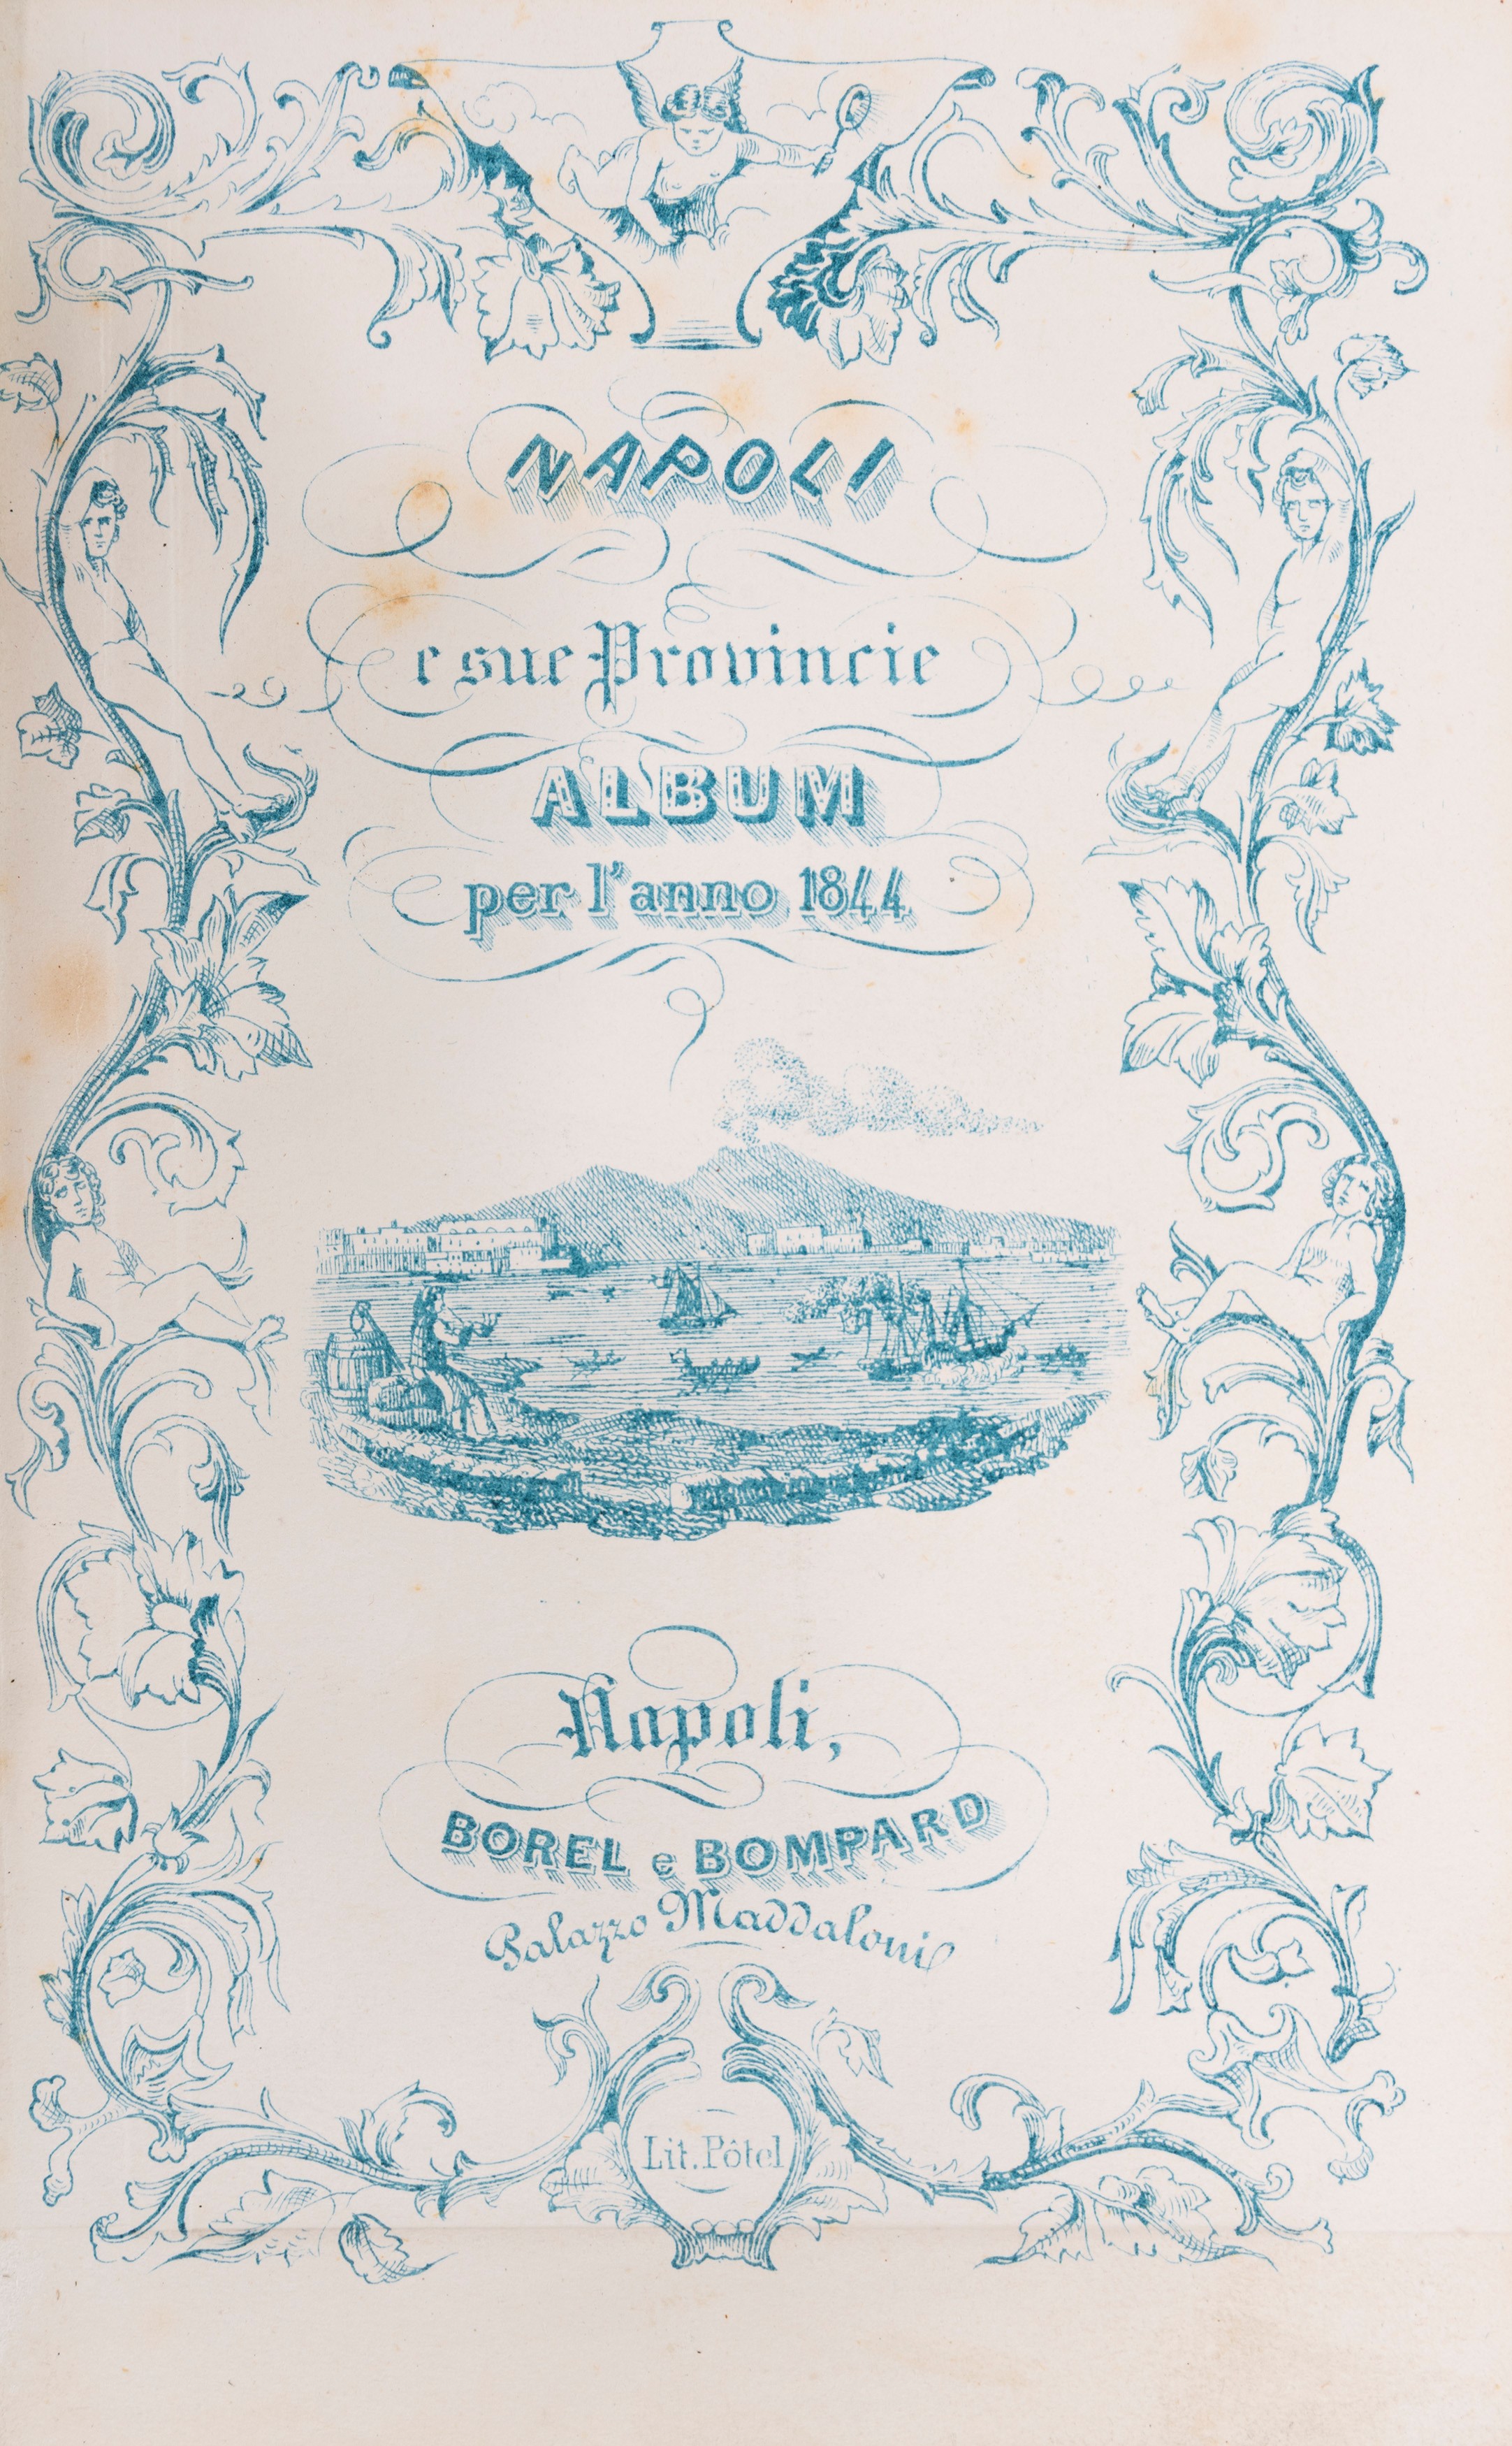 NAPOLI
e sue Provincie
ALBUM
per l'anno 1844
Napoli,
BOREL e BOMPARD
Palazzo Maddaloni
Lit. Pôtel